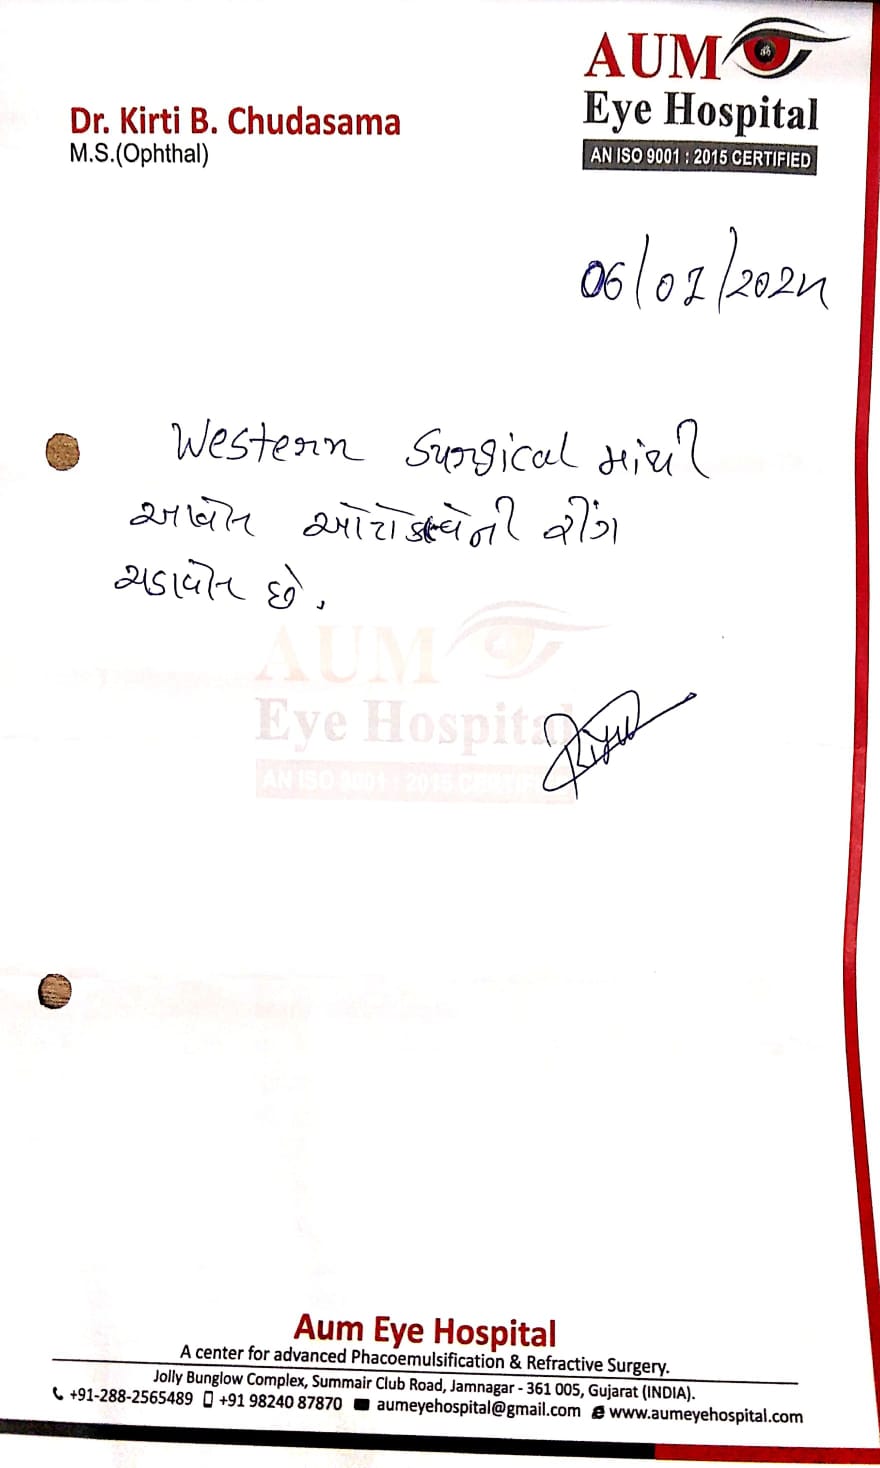 AUM
Eye Hospital
AN ISO 9001 : 2015 CERTIFIED
Dr. Kirti B. Chudasama
M.S.(Ophthal)
06/01/202૫
Western Surgical માંથી
આવેલ ઓટોકલેવની રીંગ
ચડાવેલ છે.
AUM
Eye Hospital
AN ISO 9001 : 2015 CERTIFIED
Aum Eye Hospital
A center for advanced Phacoemulsification & Refractive Surgery.
Jolly Bunglow Complex, Summair Club Road, Jamnagar - 361 005, Gujarat (INDIA).
+91-288-2565489 +91 98240 87870 aumeyehospital@gmail.com www.aumeyehospital.com